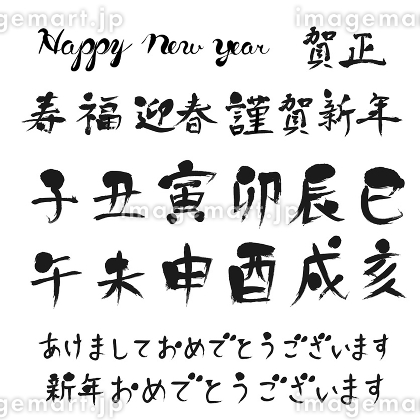 Happy New year 賀正
寿 福 迎春 謹賀新年
子 丑 寅 卯 辰 巳
午 未 申 酉 戌 亥
あけましておめでとうございます
新年おめでとうございます
imagemart.jp